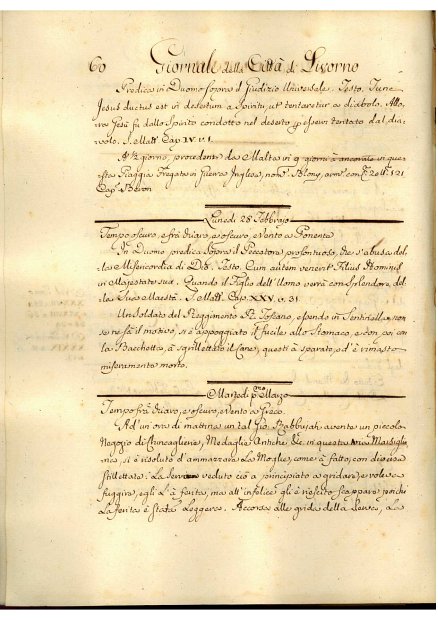 60 Giornale della Città di Livorno
Predica in Duomo sopra il Giudizio Universale. Testo. Tunc
Jesus ductus est in desertum a Spiritu, ut tentaretur a diabolo. Allo-
ra Gesù fu dallo Spirito condotto nel deserto p essere tentato dal dia-
volo. S. Matt. Cap. IV. v. 1.
A ½ giorno, procedente da Malta in 9 giorni à ancorato in que-
sta Piaggia Fregata in guerra Inglese, nom.
Cap.
Lunedì 28 Febbrajo
Tempo oscuro, e frà chiaro, e oscuro, e vento a Ponente
In Duomo predica sopra il Peccatore presontuoso, che s'abusa del-
la Misericordia di Dio. Testo. Cum autem venerit Filius Hominis
in Majestate sua. Quando il Figlio dell'Uomo verrà con splendore del-
la Sua Maestà. S. Matt. Cap. XXV. v. 31.
Un Soldato del Reggimento Rl. Toscano, essendo in Sentinella, non
se ne sà il motivo, si è appoggiato il fucile allo Stomaco, e con poi con
la Bacchetta, à sgrillettato il Cane, questi à sparato, ed è rimasto
miseramente morto.
Martedì pmo Marzo
Tempo frà chiaro, e oscuro, e vento a Greco.
Ad un'ora di mattina un tal Gio. avente un piccolo
Negozio di Chincaglierie, Medaglie Antiche &c. in questa via Marsiglia-
na, si è risoluto d'ammazzare la Moglie, come à fatto, con diverse
stilettate: La Serva veduto ciò a principiato a gridare, e voleva
fuggire, egli l'à ferita, ma all'infelice gli è riescito scappare, poiché
la ferita è stata leggera. Accorsa alle grida della Serva, la